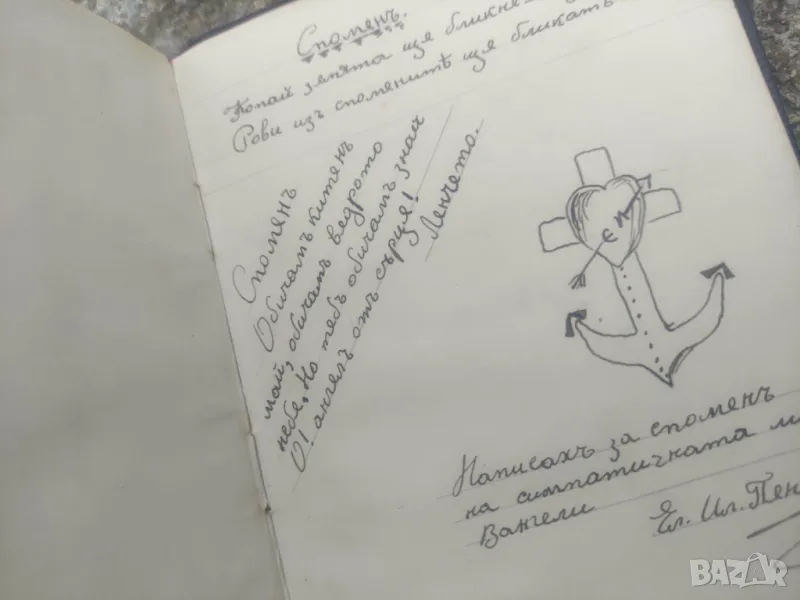 Споменъ.
Копай земята ще бликне
Рови изъ споменитѣ ще бликатъ
Споменъ
Обичамъ китенъ
май, обичамъ ведрото
небе, Но тебъ обичамъ знай
О! ангелъ отъ сърце!
Ленчето.
Є И
Написахъ за споменъ
на симпатичката ми
Вангели
Ел. Ил. Пен
BAZAR